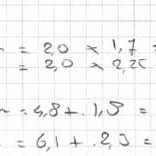 = 2,0 × 1,7 =
= 2,0 × 2,25
= 4,8 + . 1,3 =
= 6,1 + . 2,3 =